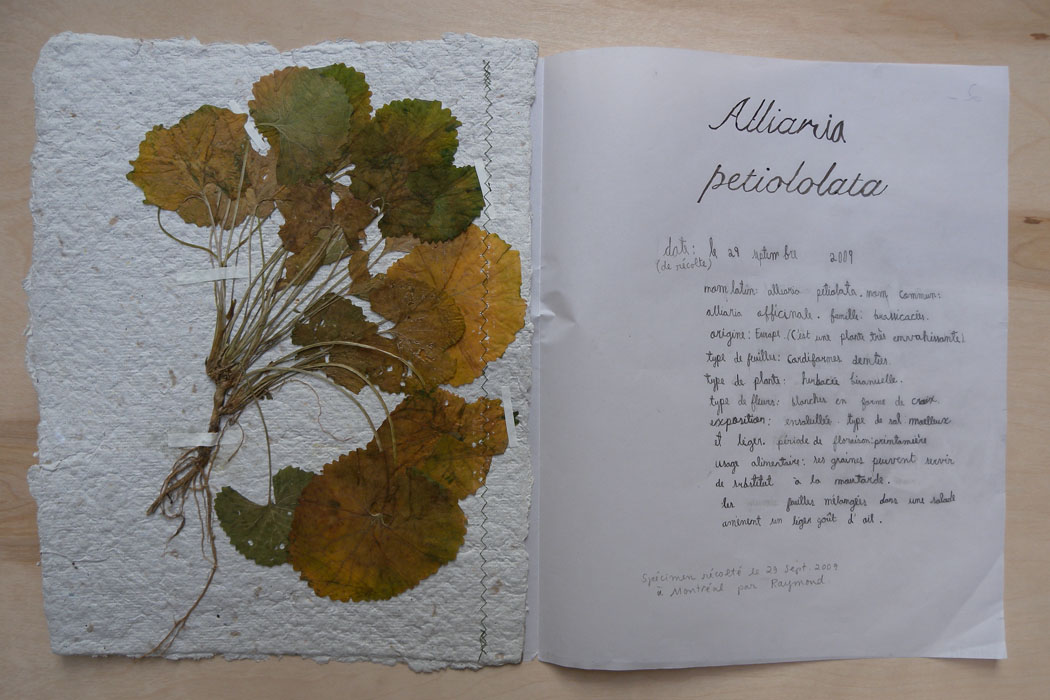 Alliaria
petiololata
date: le 29 septembre 2009
(de récolte)
nom latin: alliaria petiolata. nom commun:
alliaria officinale. famille: brassicacées.
origine: Europe. (C'est une plante très envahissante)
type de feuilles: Cardiformes dentées.
type de plante: herbacée bisanuelle.
type de fleurs: blanches en forme de croix.
exposition: ensoleillée. type de sol moelleux
et léger. période de floraison: printanière
usage alimentaire: ses graines peuvent servir
de substitut à la moutarde.
les feuilles mélangées dans une salade
amènent un léger goût d'ail.
Spécimen récolté le 23 Sept. 2009
à Montréal par Raymond